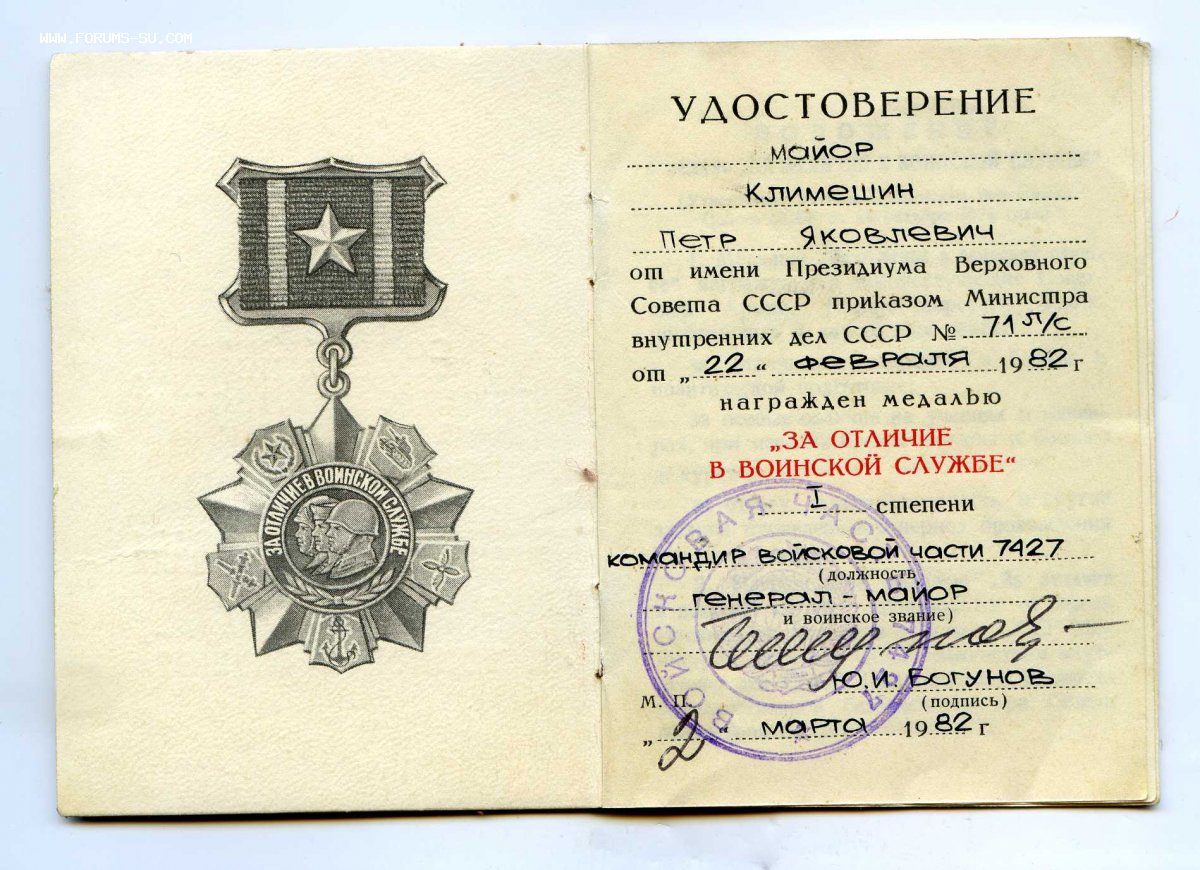 WWW.FORUMS-SU.COM
ЗА ОТЛИЧИЕ В ВОИНСКОЙ СЛУЖБЕ
УДОСТОВЕРЕНИЕ
майор
Климешин
Петр Яковлевич
от имени Президиума Верховного
Совета СССР приказом Министра
внутренних дел СССР № 71 л/с
от „22“ февраля 1982 г
награжден медалью
„ЗА ОТЛИЧИЕ
В ВОИНСКОЙ СЛУЖБЕ“
I степени
командир войсковой части 7427
(должность
генерал-майор
и воинское звание)
Ю.И. Богунов
М. П. (подпись)
„2“ марта 1982 г
ВОЙСКОВАЯ ЧАСТЬ 7427